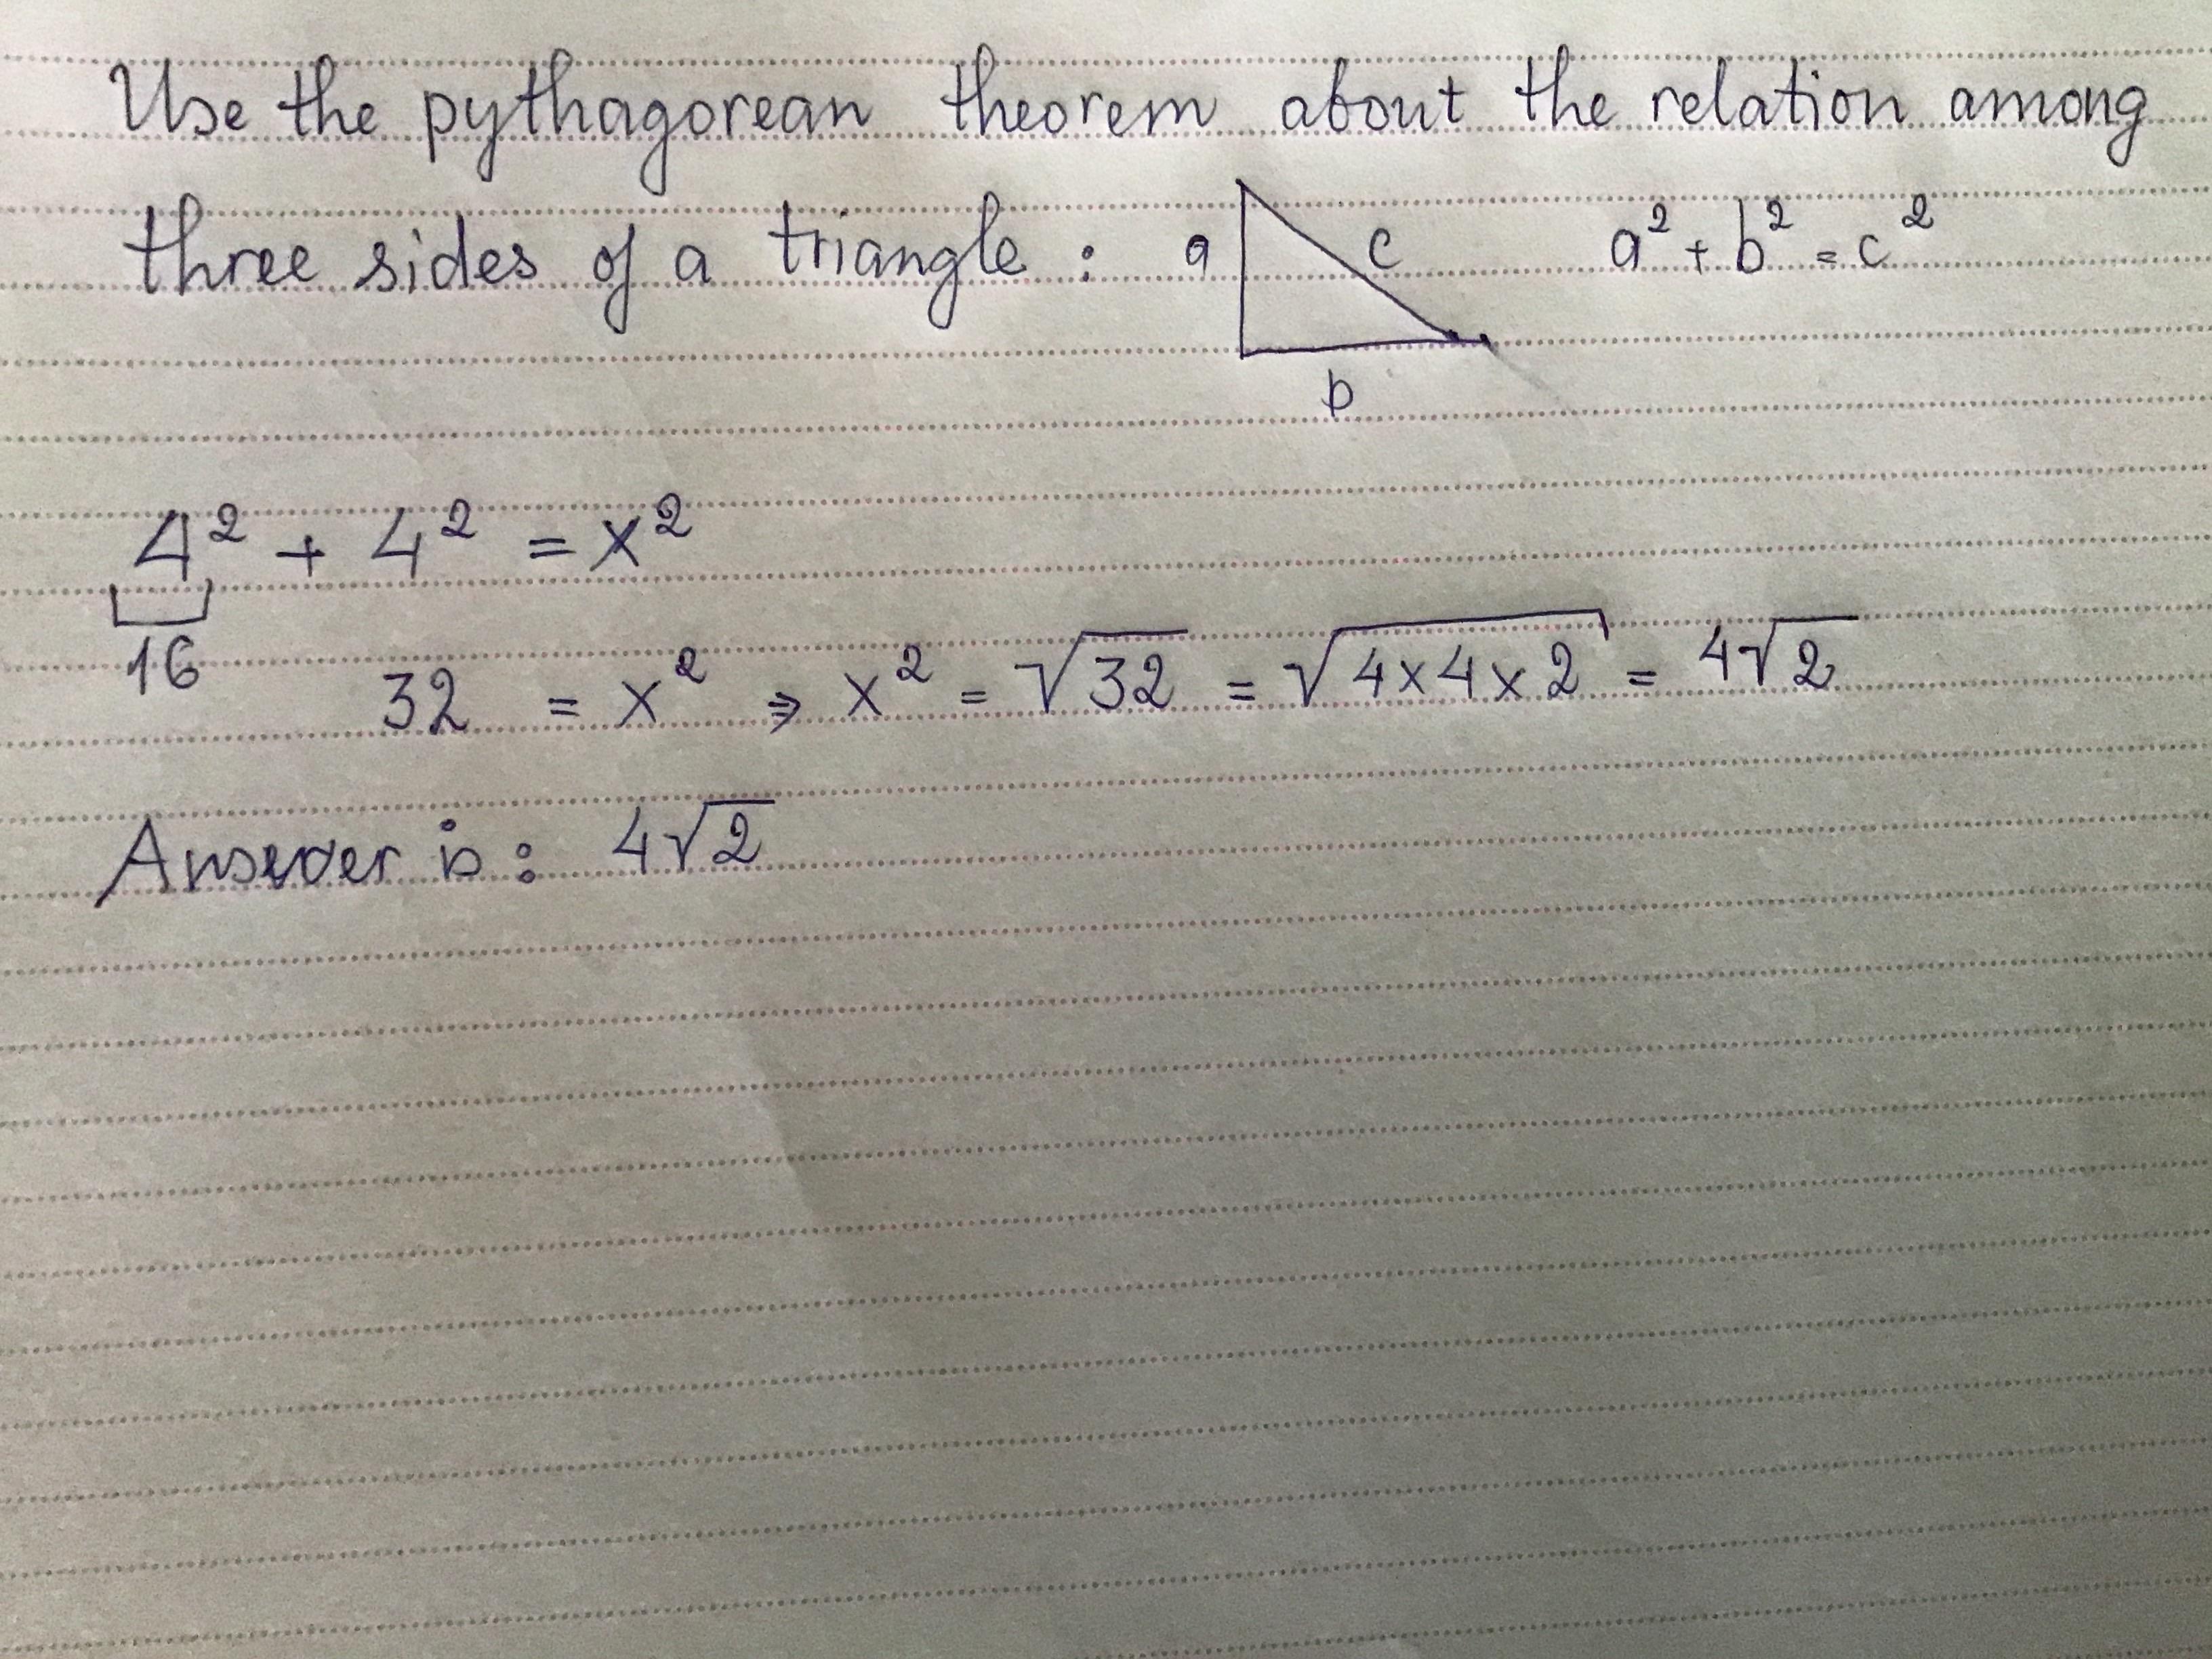 Use the pythagorean theorem about the relation among
three sides of a triangle : a c b a² + b² = c²
4² + 4² = x²
16
32 = x² ⇒ x² = √32 = √4×4×2 = 4√2
Answer is : 4√2